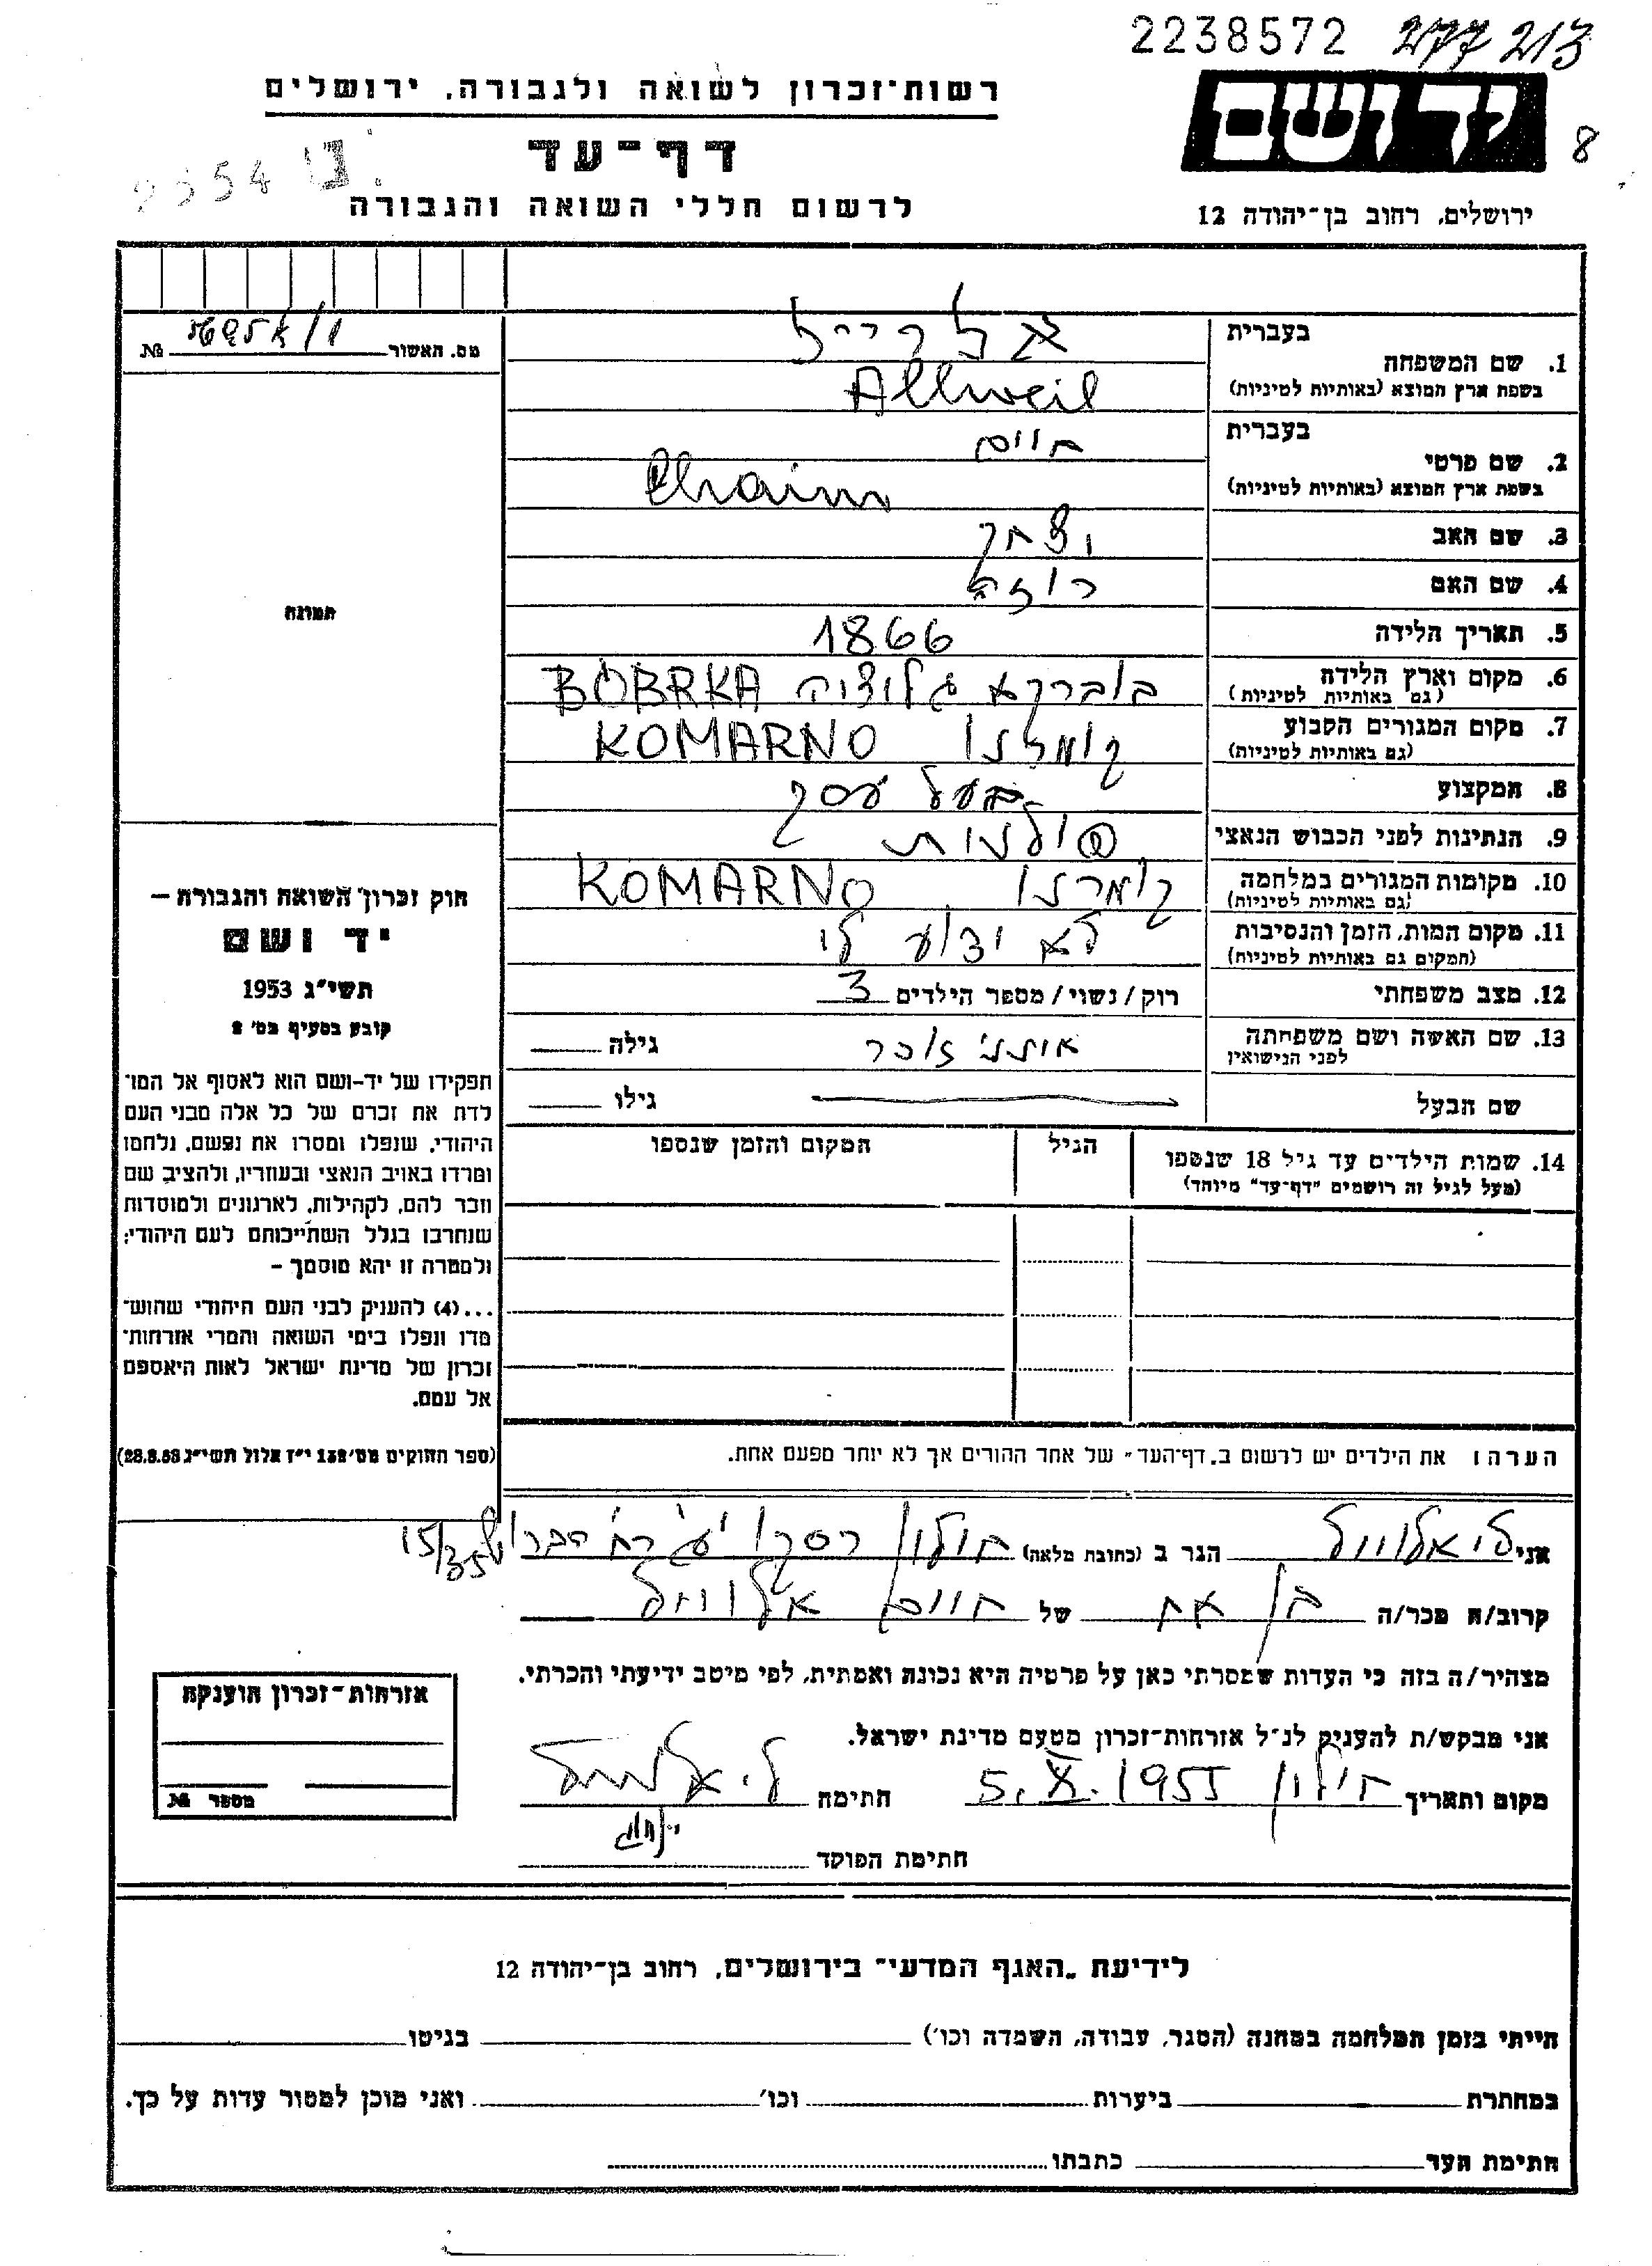 2238572 277 213
יד ושם
8
רשות־זכרון לשואה ולגבורה, ירושלים
דף־עד
לרשום חללי השואה והגבורה
ירושלים, רחוב בן־יהודה 12
מס. האשור № 
1. שם המשפחה
בעברית
בשפת ארץ המוצא (באותיות לטיניות)
Allweil
2. שם פרטי
בעברית חיים
בשפת ארץ המוצא (באותיות לטיניות) Chaim
3. שם האב יצחק
4. שם האם רוזה
5. תאריך הלידה 1866
6. מקום וארץ הלידה בוברקא גליציה BOBRKA
(גם באותיות לטיניות)
7. מקום המגורים הקבוע קומרנו KOMARNO
(גם באותיות לטיניות)
8. המקצוע בעל עסק
9. הנתינות לפני הכבוש הנאצי פולנית
10. מקומות המגורים במלחמה קומרנו KOMARNO
(גם באותיות לטיניות)
11. מקום המות, הזמן והנסיבות לא ידוע לי
(המקום גם באותיות לטיניות)
12. מצב משפחתי רוק/נשוי/מספר הילדים 3
13. שם האשה ושם משפחתה גילה
לפני הנישואין
שם הבעל גילו
14. שמות הילדים עד גיל 18 שנספו הגיל המקום והזמן שנספו
(מעל לגיל זה רושמים "דף־עד" מיוחד)
תמונה
חוק זכרון השואה והגבורה –
יד ושם
תשי"ג 1953
קובע בסעיף מס' 2
תפקידו של יד-ושם הוא לאסוף אל המו־
לדת את זכרם של כל אלה מבני העם
היהודי, שנפלו ומסרו את נפשם, נלחמו
ומרדו באויב הנאצי ובעוזריו, ולהציב שם
וזכר להם, לקהילות, לארגונים ולמוסדות
שנחרבו בגלל השתייכותם לעם היהודי;
ולמטרה זו יהא מוסמך –
...(4) להעניק לבני העם היהודי שהוש־
מדו ונפלו בימי השואה והמרי אזרחות־
זכרון של מדינת ישראל לאות היאספם
אל עמם.
(ספר החוקים מס' 132 י"ז אלול תשי"ג 28.8.53)
הערה: את הילדים יש לרשום ב„דף־העד" של אחד ההורים אך לא יותר מפעם אחת.
אני הגר ב (כתובת מלאה) חולון 15/35
קרוב/ה מכר/ה בן אח של חיים אלוויל
מצהיר/ה בזה כי העדות שמסרתי כאן על פרטיה היא נכונה ואמתית, לפי מיטב ידיעתי והכרתי.
אני מבקש/ת להעניק לנ"ל אזרחות־זכרון מטעם מדינת ישראל.
מקום ותאריך חולון 5.X.1955 חתימה
חתימת הפוקד
אזרחות־זכרון הוענקה
מספר №
לידיעת „האגף המדעי" בירושלים, רחוב בן־יהודה 12
הייתי בזמן המלחמה במחנה (הסגר, עבודה, השמדה וכו') בגיטו
במחתרת ביערות וכו' ואני מוכן למסור עדות על כך.
חתימת העד כתבתו